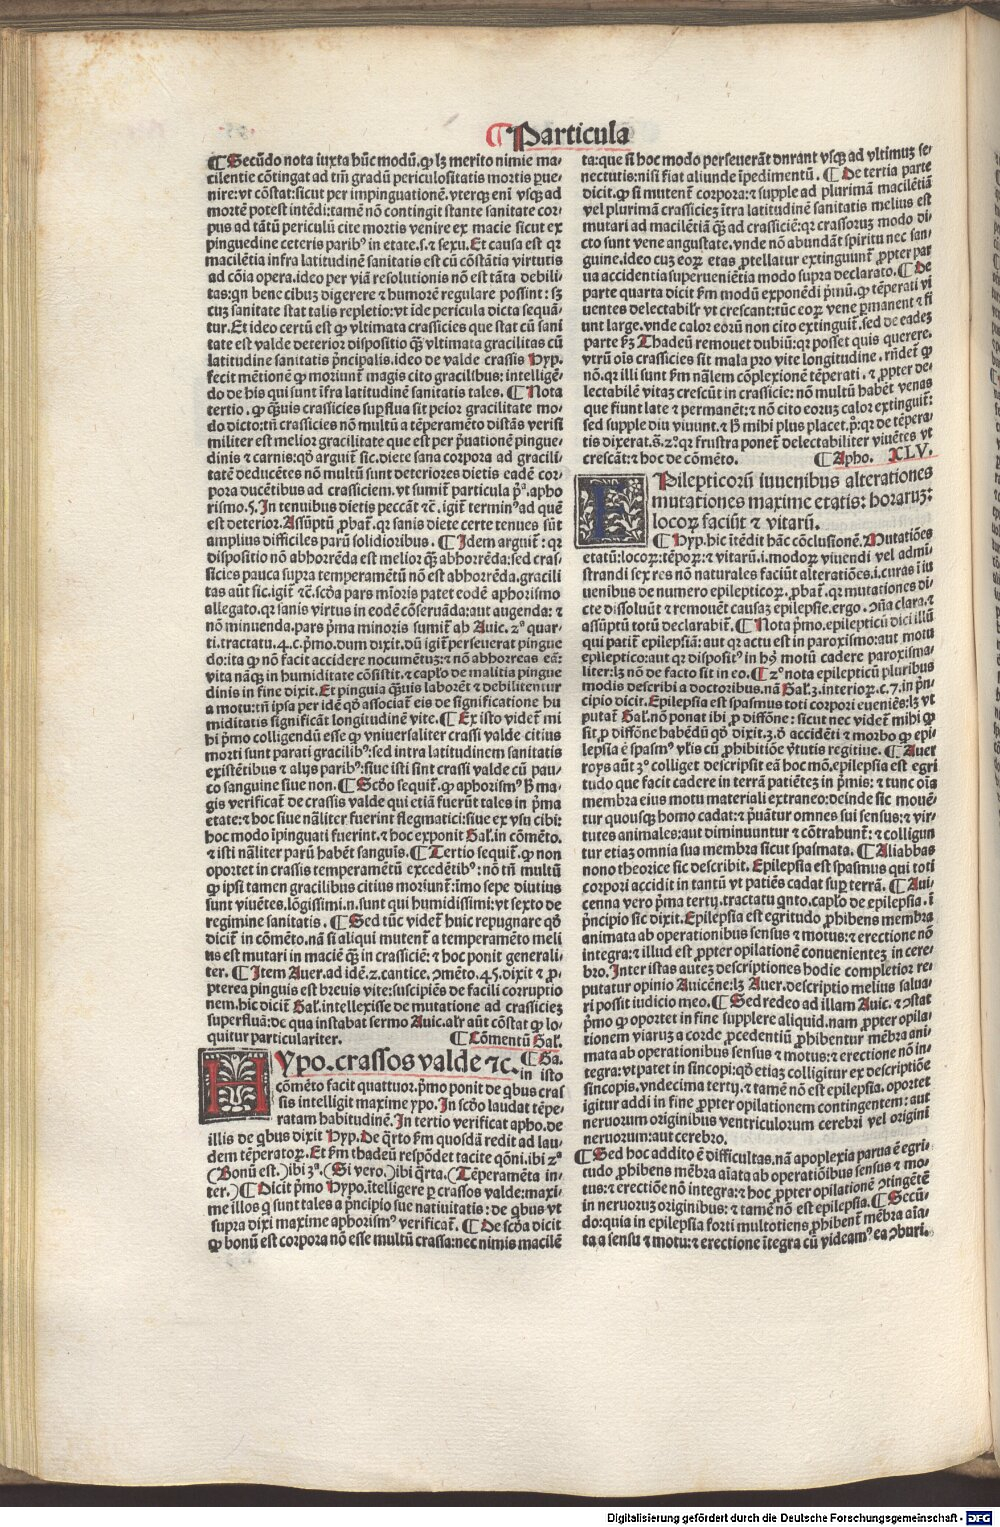 ¶ Particula
¶ Secūdo nota iuxta hūc modū. ꝙ lꝫ merito nimie ma-
cilentie cōtingat ad tm̄ gradū periculositatis ꝑue-
nire: vt cōstat: sicut per impinguationē. vterqꝫ eni vsqꝫ ad
mortē potest intēdi: tamē nō contingit stante sanitate cor-
pus ad tātū periculū cite mortis venire ex macie sicut ex
pinguedine ceteris paribꝰ in etate. s. ⁊ sexu. Et causa est qꝛ
macilētia infra latitudinē sanitatis est cū cōstātia virtutis
ad cōia opera. ideo per viā resolutionis nō est tāta debili-
tas: qn bene cibuꝫ digerere ⁊ humorē regulare possint: sꝫ
cuꝫ sanitate stat talis repletio: vt ide pericula dicta sequā-
tur. Et ideo certū est ꝙ vltimata crassicies que stat cū sani
tate est valde deterior dispositio qꝫ vltimata gracilitas cū
latitudine sanitatis pⁿcipalis. ideo de valde crassis Hyp.
fecit mētionē ꝙ moriunt̄ magis cito gracilibus: intelligē-
do de his qui sunt īfra latitudinē sanitatis tales. ¶ Nota
tertio. ꝙ qꝫuis crassicies suꝑflua sit peior gracilitate mo-
do dicto: tn̄ crassicies nō multū a tēperamēto distās verisi
militer est melior gracilitate que est per p̄uationē pingue-
dinis ⁊ carnis: qō arguit̄ sic. diete sana corpora ad gracili-
tatē deducētes nō multū sunt deteriores dietis eadē cor-
pora ducētibus ad crassiciem. vt sumit̄ particula pⁱᵃ. apho
rismo. 5. In tenuibus dietis peccāt ⁊c̄. igit̄ terminꝰ ad quē
est deterior. Assūptū ꝓbat̄. qꝛ sanis diete certe tenues sūt
amplius difficiles parū solidioribus. ¶ Idem arguit̄: qꝛ
dispositio nō abhorrēda est melior qꝫ abhorrēda: sed cras-
sicies pauca supra temperamētū nō est abhorrēda. gracili
tas aūt sic. igit̄ ⁊c̄. scdā pars mīoris patet eodē aphorismo
allegato. qꝛ sanis virtus in eodē cōseruāda: aut augenda: ⁊
nō minuenda. pars p̄ma minoris sumit̄ ab Auic. 2ᵃ quar-
ti. tractatu. 4. c. p̄mo. dum dixit. dū igit̄ perseuerat pingue
do: ita ꝙ nō faciat accidere nocumētuꝫ: ⁊ nō abhorreas eā:
vita nāqꝫ in humiditate cōsistit. ⁊ caplō de malitia pingue
dinis in fine dixit. Et pinguia qꝫuis laborēt ⁊ debilitentur
a motu: tn̄ ipsa per idē qō associat̄ eis de significatione hu
miditatis significāt longitudinē vite. ¶ Ex isto videt̄ mi
hi p̄mo colligendū esse ꝙ vniuersaliter crassi valde citius
morti sunt parati gracilibꝰ: sed intra latitudinem sanitatis
existētibus ⁊ alijs paribꝰ: siue isti sint crassi valde cū pau-
co sanguine siue non. ¶ Scdo sequit̄. ꝙ aphorismꝰ ħ ma-
gis verificat̄ de crassis valde qui etiā fuerūt tales in p̄ma
etate: ⁊ hoc siue nāliter fuerint flegmatici: siue ex vsu cibi:
hoc modo īpinguati fuerint. ⁊ hoc exponit Gal̄. in cōmēto.
⁊ isti nāliter parū habēt sanguīs. ¶ Tertio sequit̄. ꝙ non
oportet in crassis temperamētū excedētibꝰ: nō tn̄ multū
ꝙ ipsi tamen gracilibus citius moriunt̄: īmo sepe diutius
sunt viuētes. lōgissimi. n. sunt qui humidissimi: vt sexto de
regimine sanitatis. ¶ Sed tūc videt̄ huic repugnare qō
dicit̄ in cōmēto. nā si aliqui mutent̄ a temperamēto meli
us est mutari in maciē qꝫ in crassiciē: ⁊ hoc ponit generali-
ter. ¶ Item Auer. ad idē. 2. cantice. ↄmēto. 45. dixit ⁊ ꝓ-
pterea pinguis est breuis vite: suscipiēs de facili corruptio
nem. hic dicit̄ Gal̄. intellexisse de mutatione ad crassiciez
superfluā: de qua instabat sermo Auic. alr̄ aūt cōstat ꝙ lo-
quitur particulariter. ¶ Cōmentū Gal̄.
Hypo. crassos valde ⁊c. ¶ Ga.
in isto
cōmēto facit quattuor. p̄mo ponit de qbus cras
sis intelligit maxime ypo. In scdo laudat tēpe-
ratam habitudinē. In tertio verificat apho. de
illis de qbus dixit Hyp. De qrto fm quosdā redit ad lau-
dem tēperatoꝝ. Et fm thadeū respōdet tacite qōni. ibi 2ᵃ
(Bonū est.) ibi 3ᵃ. (Si vero.) ibi qrta. (Tēperamēta in-
ter.) ¶ Dicit p̄mo Hypo. ītelligere ꝑ crassos valde: maxi-
me illos q sunt tales a pⁿcipio sue natiuitatis: de qbus vt
supra dixi maxime aphorismꝰ verificat̄. ¶ De scda dicit
ꝙ bonū est corpora nō esse multū crassa: nec nimis macilē
ta: que si hoc modo perseuerāt durant vsqꝫ ad vltimuꝫ se-
nectutis: nisi fiat aliunde īpedimentū. ¶ De tertia parte
dicit. ꝙ si mutent̄ corpora: ⁊ supple ad plurimā macilētiā
vel plurimā crassiciez ītra latitudinē sanitatis melius est
mutari ad macilētiā qꝫ ad crassiciē: qꝛ crassoruꝫ modo di-
cto sunt vene angustate. vnde nō abundāt spiritu nec san-
guine. ideo cuꝫ eoꝝ etas ꝓtellatur extinguunt̄ ꝓpter par
ua accidentia superueniētia modo supra declarato. ¶ De
parte quarta dicit fm modū exponēdi p̄mū. ꝙ tēperati vi
uentes delectabilr̄ vt crescant: tūc eoꝝ vene ꝑmanent ⁊ fi
unt large. vnde calor eorū non cito extinguit̄. sed de eadeꝫ
parte fꝫ Thadeū remouet dubiū: qꝛ posset quis querere.
vtrū oīs crassicies sit mala pro vite longitudine. rn̄det̄ ꝙ
nō. qꝛ illi sunt fm nālem cōplexionē tēperati. ⁊ ꝓpter de-
lectabilē vitaꝫ crescūt in crassicie: nō multū habēt venas
que fiunt late ⁊ permanēt: ⁊ nō cito eoruꝫ calor extinguit̄:
sed supple diu viuunt. ⁊ ħ mihi plus placet. pⁱ: qꝛ de tēpera-
tis dixerat. s̄. 2º. qꝛ frustra ponet̄ delectabiliter viuētes vt
crescāt: ⁊ hoc de cōmēto. ¶ Apho. XLV.
EPilepticorū iuuenibus alterationes
mutationes maxime etatis: horaruꝫ:
locoꝝ faciūt ⁊ vitarū.
¶ Hyp. hic itēdit hāc cōclusionē. Mutatiōes
etatū: locoꝝ: tēpoꝝ: ⁊ vitarū. i. modoꝝ viuendi vel admi
strandi sex res nō naturales faciūt alteratiōes. i. curas ī iu
uenibus de numero epilepticoꝝ. ꝓbat̄. qꝛ mutationes di-
cte dissoluūt ⁊ remouēt causaꝫ epilepsie. ergo. ↄn̄a clara. ⁊
assūptū totū declarabit̄. ¶ Nota p̄mo. epilepticū dici illū
qui patit̄ epilepsiā: aut qꝛ actu est in paroxismo: aut motu
epileptico: aut qꝛ dispositꝰ in hꝰ motū cadere paroxisma-
liter: lꝫ nō de facto sit in eo. ¶ 2º nota epilepticū pluribus
modis describi a doctoribus. nā Gal̄. 3. interioꝝ. c. 7. in pⁿ-
cipio dicit. Epilepsia est spasmus toti corpori eueniēs: lꝫ vt
putat̄ Gal̄. nō ponat ibi ꝓ diffōne: sicut nec videt̄ mihi ꝙ
sit ꝓ diffōne habēdū qō dixit. 3. ō accidēti ⁊ morbo ꝙ epi-
lepsia ē spasmꝰ vlis cū ꝓhibitiōe v̄tutis regitiue. ¶ Auer
roys aūt 3º colliget descripsit eā hoc mō. epilepsia est egri
tudo que facit cadere in terrā patiētez in p̄mis: ⁊ tunc oīa
membra eius motu materiali extraneo: deinde sic mouē-
tur quousqꝫ homo cadat: ⁊ p̄uātur omnes sui sensus: ⁊ vir-
tutes animales: aut diminuuntur ⁊ cōtrahunt̄: ⁊ colligun
tur etiaꝫ omnia sua membra sicut spasmata. ¶ Aliabbas
nono theorice sic describit. Epilepsia est spasmus qui toti
corpori accidit in tantū vt patiēs cadat suꝑ terrā. ¶ Aui-
cenna vero p̄ma tertij. tractatu qnto. caplo de epilepsia. ī
pⁿcipio sic dixit. Epilepsia est egritudo ꝓhibens membra
animata ab operationibus sensus ⁊ motus: ⁊ erectione nō
integra: ⁊ illud est ꝓpter opilationē conuenientez in cere-
bro. Inter istas autez descriptiones hodie completior re-
putatur opinio Auicēne: lꝫ Auer. descriptio melius salua-
ri possit iudicio meo. ¶ Sed redeo ad illam Auic. ⁊ ↄstat
p̄mo ꝙ oportet in fine supplere aliquid. nam ꝓpter opila-
tionem viaruꝫ a corde ꝓcedentiū ꝓhibentur mēbra ani-
mata ab operationibus sensus ⁊ motus: ⁊ erectione nō in-
tegra: vt patet in sincopi: qō etiaꝫ colligitur ex descriptiōe
sincopis. vndecima tertij. ⁊ tamē nō est epilepsia. oportet
igitur addi in fine ꝓpter opilationem contingentem: aut
neruorum originibus ventriculorum cerebri vel origini
neruorum: aut cerebro.
¶ Sed hoc addito ē difficultas. nā apoplexia parua ē egri-
tudo ꝓhibens mēbra aīata ab operatiōibus sensus ⁊ mo-
tus: ⁊ erectiōe nō integra: ⁊ hoc ꝓpter opilationē ↄtingētē
in neruoruꝫ originibus: ⁊ tamē nō est epilepsia. ¶ Secū-
do: quia in epilepsia forti multotiens ꝓhibent̄ mēbra aīa-
ta a sensu ⁊ motu: ⁊ erectione ītegra cū videamꝰ ea ↄburi.
Digitalisierung gefördert durch die Deutsche Forschungsgemeinschaft - DFG